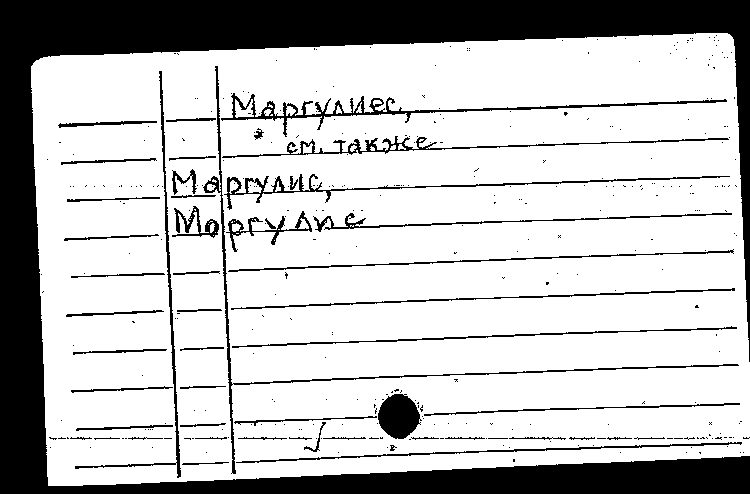 Маргулиес,
см. также
Маргулис,
Моргулис